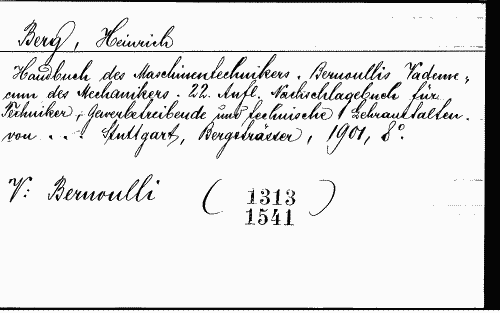 Berg, Heinrich
Handbuch des Maschinentechnikers. Bernoullis Vademe-
cum des Mechanikers. 22. Aufl. Nachschlagebuch für
Techniker, Gewerbetreibende und technische Lehranstalten.
von . . . : Stuttgart, Bergsträsser, 1901, 8°.
V: Bernoulli ( 1313 )
1541